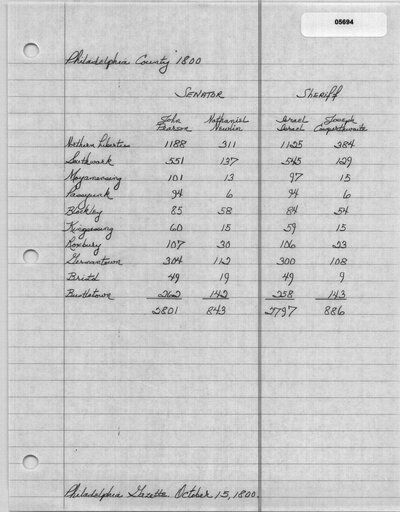 05694
Philadelphia County 1800
SENATOR SHERIFF
John Nathaniel Israel Joseph
Pearson Newlin Israel Cowperthwaite
Northern Liberties 1188 311 1125 384
Southwark 551 137 545 129
Moyamensing 101 13 97 15
Passyunk 94 6 94 6
Blockley 85 58 84 54
Kingsessing 60 15 59 15
Roxbury 107 30 106 23
Germantown 304 112 300 108
Bristol 49 19 49 9
Bustletown 262 142 258 143
2801 843 2797 886
Philadelphia Gazette October 15, 1800.